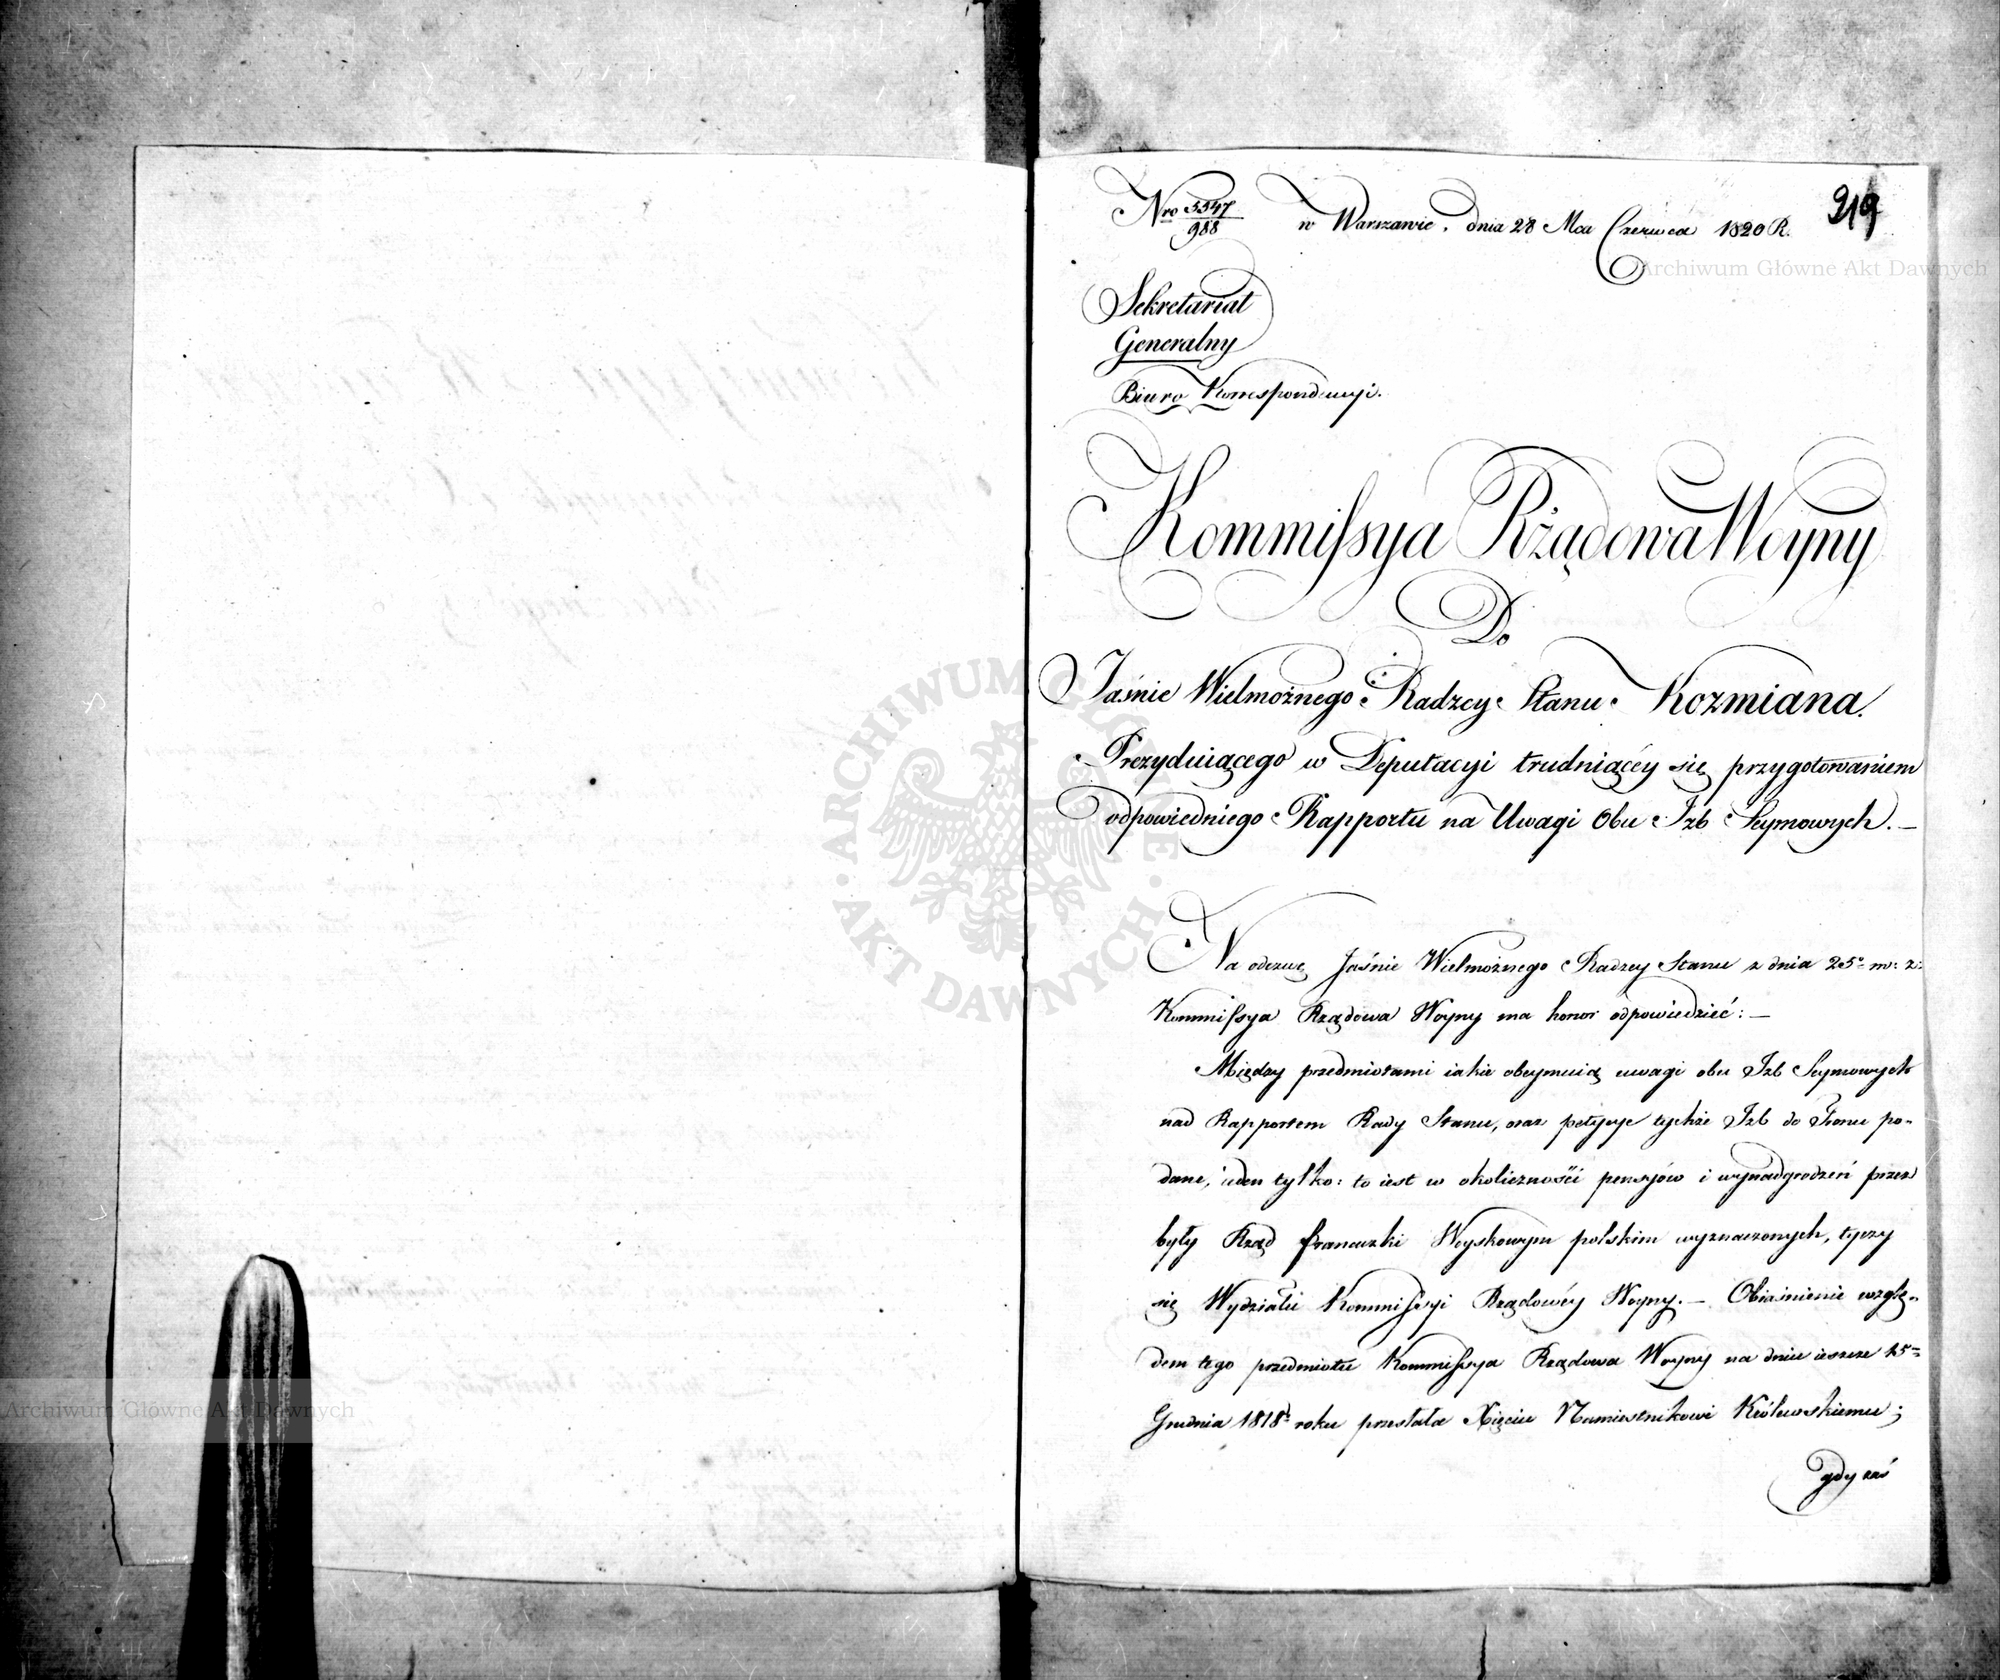 Nro 5547/988 w Warszawie, dnia 28 Mca Czerwca 1820 R. 219
Sekretariat
Generalny
Biuro Korrespondencyi.
Kommissya Rządowa Woyny
Do
Jaśnie Wielmożnego Radzcy Stanu Kozmiana.
Prezyduiącego w Deputacyi trudniącéy się przygotowaniem
odpowiedniego Rapportu na Uwagi Obu Izb Seymowych. —
Na odezwę Jaśnie Wielmożnego Radzcy Stanu z dnia 25º m: z:
Kommissya Rządowa Woyny ma honor odpowiedzieć: —
Między przedmiotami iakie obeymuią uwagi obu Izb Seymowych
nad Rapportem Rady Stanu, oraz petycye tychże Izb do Tronu po-
dane, ieden tylko: to iest w okoliczności pensyów i wynadgrodzeń przez
były Rząd francuzki Woyskowym polskim wyznaczonych, tyczy
się Wydziału Kommissyi Rządowéy Woyny. — Obiaśnienie wzglę-
dem tego przedmiotu Kommissya Rządowa Woyny na dniu ieszcze 15
Grudnia 1818 roku przesłała Xięciu Namiestnikowi Królewskiemu;
gdy zaś
Archiwum Główne Akt Dawnych
ARCHIWUM GŁÓWNE AKT DAWNYCH
Archiwum Główne Akt Dawnych